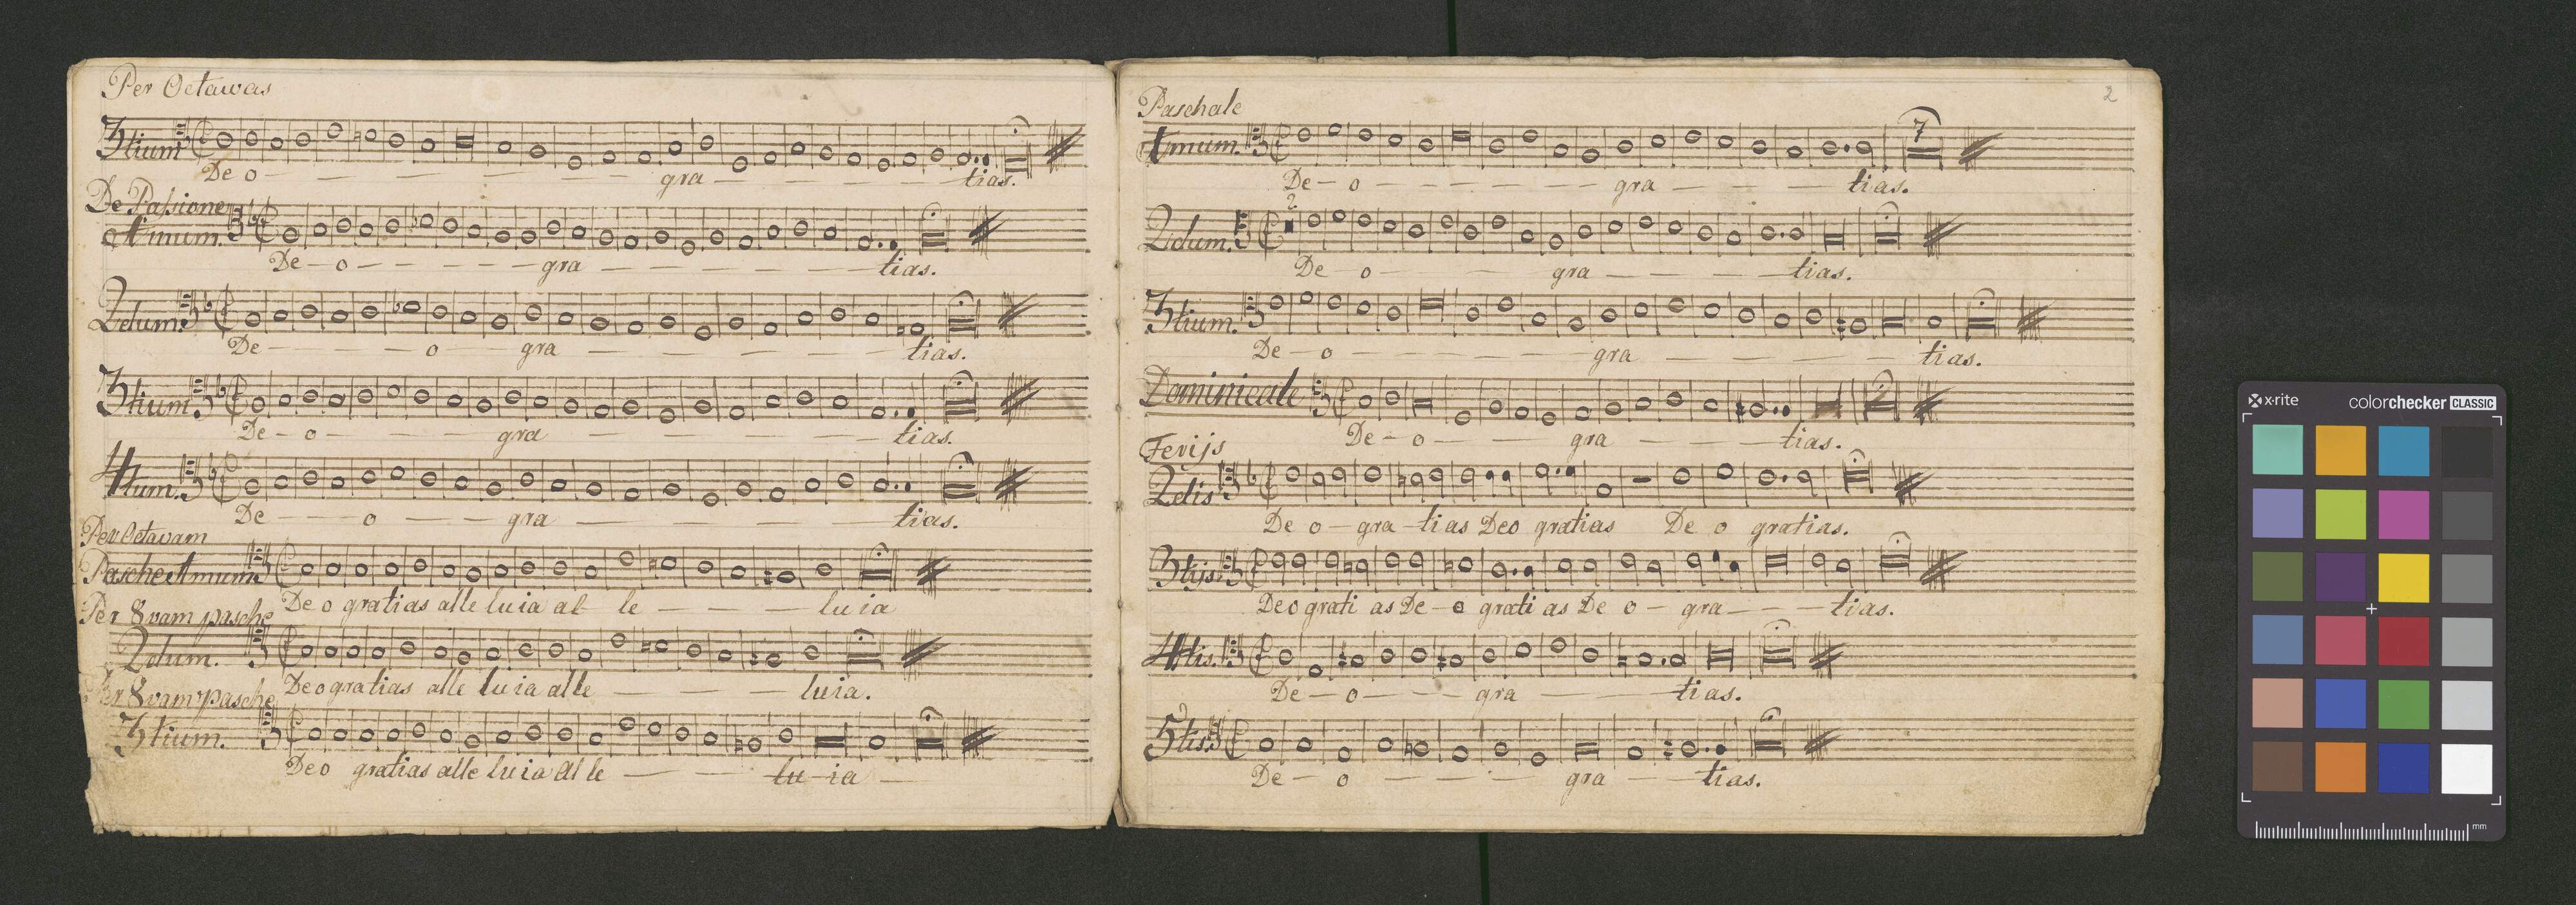 Per Octawas
3tium
De o gra tias.
De Passione
1mum.
De o gra tias.
2dum.
De o gra tias.
3tium
De o gra tias.
4tum.
De o gra tias.
Per Octavam
Pasche 1mum
Deo gratias alle luia al le luia
Per 8vam pasche
2dum.
Deo gratias alle luia alle luia.
Per 8vam pasche
3tium.
Deo gratias alle luia Al le lu ia
2
Paschale
1mum.
7
De o gra tias.
2
2dum.
De o gra tias.
3tium.
De o gra tias.
Dominicale
De o gra tias.
Ferijs
2dis
De o gra tias Deo gratias De o gratias.
3tijs
Deo grati as De o grati as De o gra tias.
4tis.
De o gra tias.
5tis
De o gra tias.
x-rite
colorchecker CLASSIC
mm